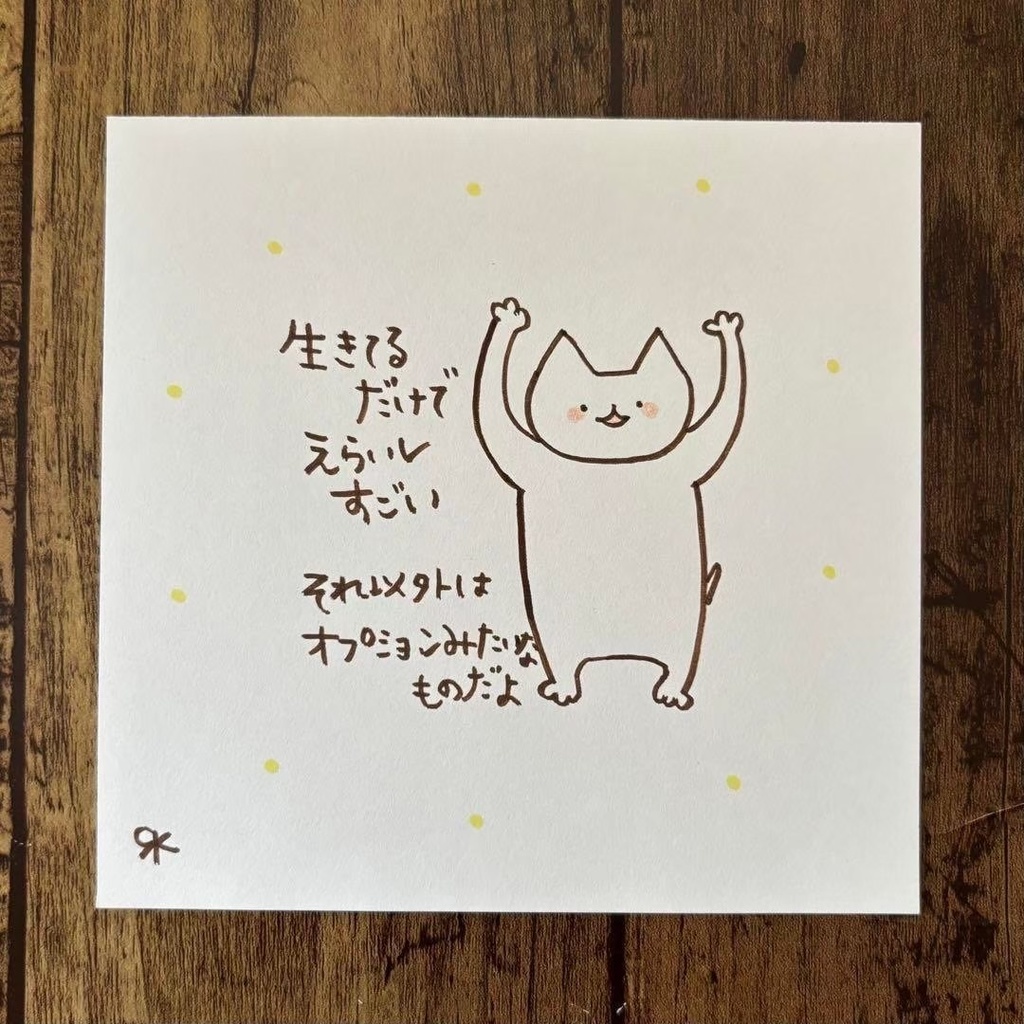 生きてる
だけで
えらいし
すごい
それ以外は
オプションみたいな
ものだよ